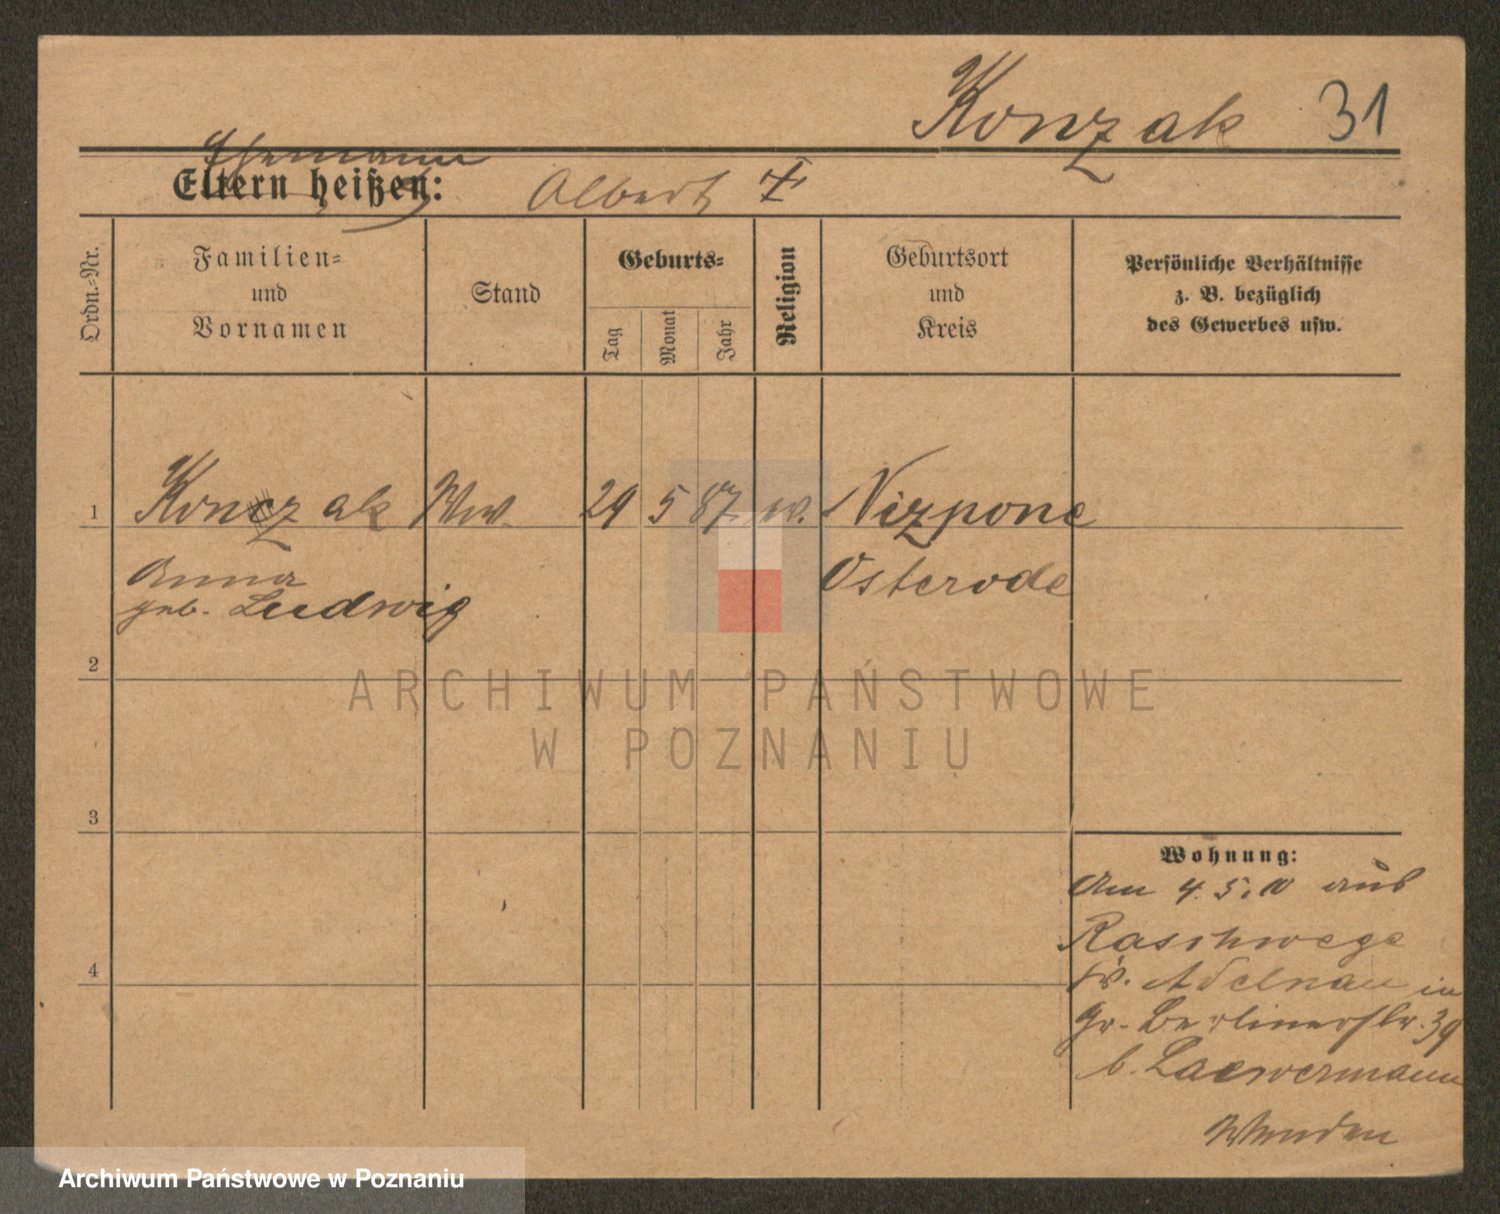 Konzak 31
Ehemann
Eltern heißen: Albert
Ordn.-Nr.
Familien-
und
Vornamen
Stand
Geburts-
Tag
Monat
Jahr
Religion
Geburtsort
und
Kreis
Persönliche Verhältnisse
z. B. bezüglich
des Gewerbes usw.
1 Konzak Ww. 29 5 87 w. Nizpone
Anna Osterode
geb. Ludwig
2
ARCHIWUM PAŃSTWOWE
W POZNANIU
3
Wohnung:
Am 4.5.10 aus
Raschwege
4
Kr. Adelnau in
Gr. Berlinerstr. 39
b. Laewermann
Archiwum Państwowe w Poznaniu